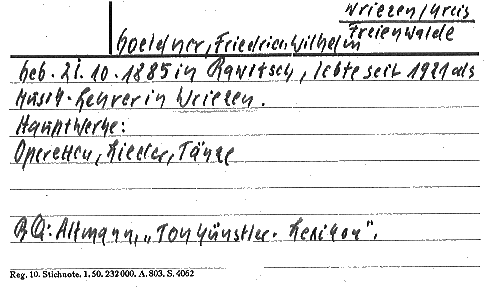 Wriezen/Kreis
Freienwalde
Goeldner, Friedrich Wilhelm
Geb. 21.10.1885 in Rawitsch, lebte seit 1921 als
Musik-Lehrer in Wriezen.
Hauptwerke:
Operetten, Lieder, Tänze
BQ: Altmann, „Tonkünstler-Lexikon".
Reg. 10. Stichnote. 1. 50. 232000. A. 803. S. 4062